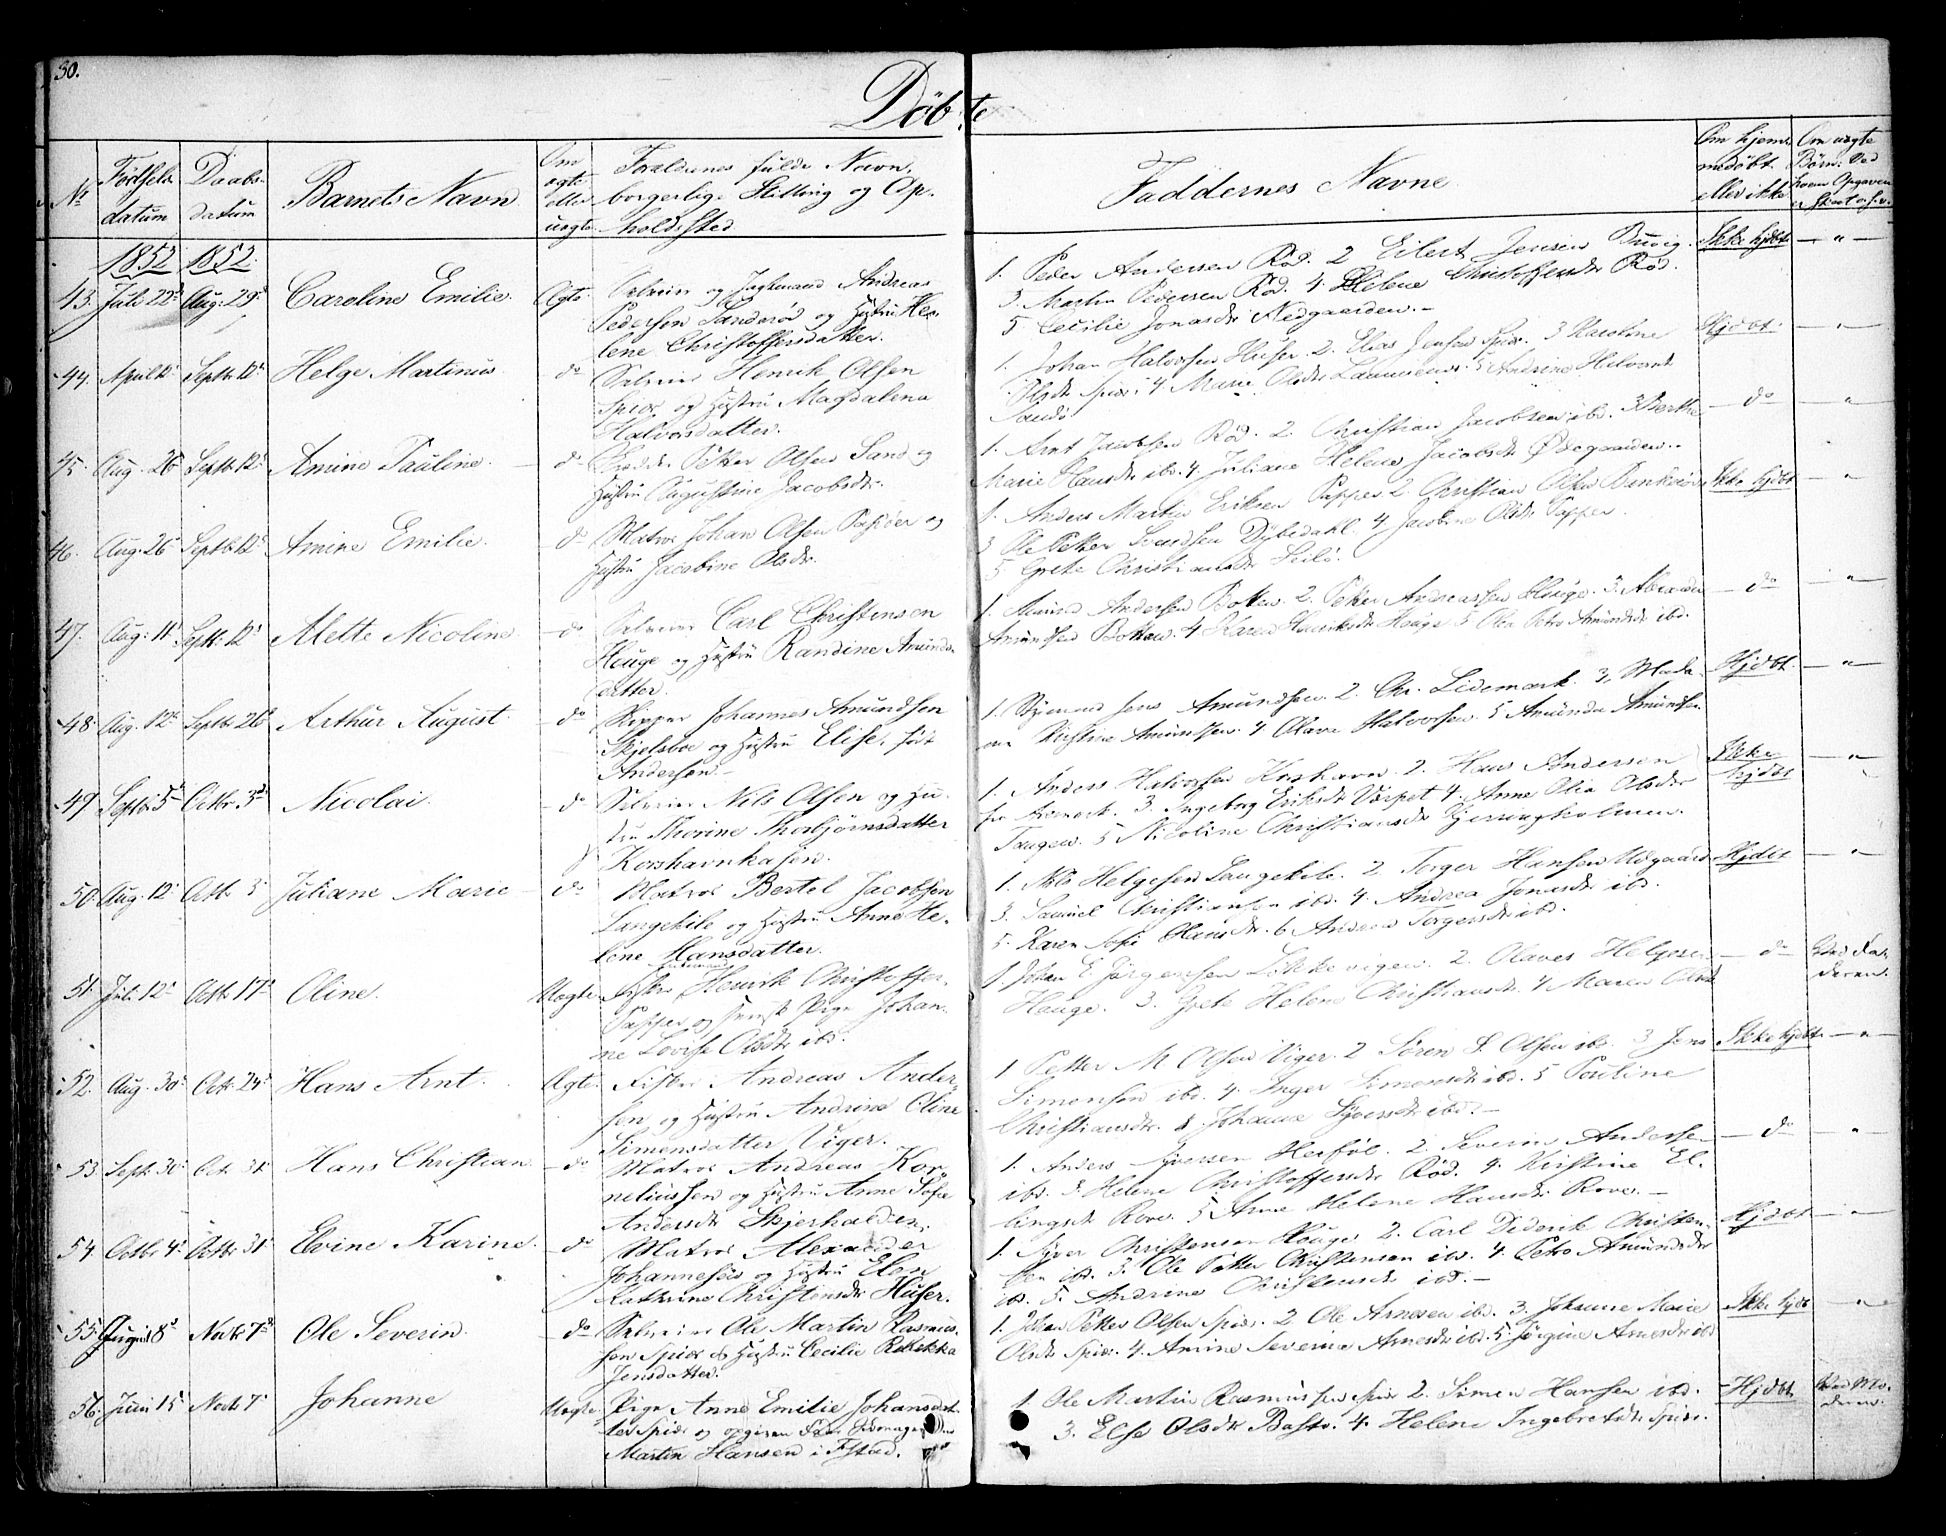 30.
Døbte
No
Fødsels datum
Daabs datum
Barnets Navn
Om ægte eller uægte
Forældrenes fulde Navn, borgerlige Stilling og Opholdssted
Faddernes Navne
Om hjemmedøbt eller ikke
Om uægte Børn. Ved hvem Opgaven er skeet o.s.v.
1852 1852
43. Juli 22d Aug. 29d Caroline Emilie. Ægte.
Selveier og Jagtmand Andreas
Pedersen Sanderød og Hustru He-
lene Christoffersdatter.
1. Peder Andersen Rød. 2 Eilert Jensen
3. Martin Pedersen Rød. 4. Helene Christoffersdtr Rød.
5 Cecilie Jonasdtr Nedgaarden.
Ikke hjdbt — " —
44. April Septb. 12 Helge Martinus do
Selveier Henrik Olsen
Spiær og Hustru Magdalena
Halvorsdatter.
1. Johan Halvorsen Huser. 2. Elias Jensen Spiær. 3 Karoline
Olsdtr Spiær. 4. Marie Olsdtr 5 Andrine
Hjdbt. — " —
45. Aug. 26 Septb. 12 Amine Pauline. — do
Petter Olsen Sand og
Hustru Augustine Jacobsdtr.
1. Arnt Jacobsen Rød. 2. Christian Jacobsen ibd. 3 Berthe
Marie Hansdtr ibd. 4. Juliane Helene Jacobsdtr Ødegaarden.
— do — " —
46. Aug. 26 Septb. 12 Amine Emilie. — do
Matros Johan Olsen Papper og
Hustru Jacobine Olsdtr.
1. Anders Martin Eriksen Papper 2 Christian Olsen
3 Ole Petter Svendsen Dybedahl. 4 Jacobine Olsdtr Papper.
5 Grete Christiansdtr
Ikke hjdbt — " —
47. Aug. 11 Septb. 12 Alette Nicoline. — do
Selveier Carl Christensen
Houge og Hustru Randine Amunds-
datter.
1. Andersen Botten. 2. Petter Andreassen Houge. 3. Alexander
Amundsen Botten. 4 Karen Henriksdtr Houge 5 Petro Amundsdtr ibd.
— do — " —
48. Aug. 12 Septb. 26 Arthur August. — do
Skipper Johannes Amundsen
Skjelsboe og Hustru Elise, født
Andersen.
1. Styrmand Jens Amundsen. 2. Chr. Lidemark. 3, Mada-
me Kirstine Amundsen. 4. Olava Halvorsen. 5 Amunda Amundsen
Hjdbt. — " —
49 Septbr 5 Octbr. 3d Nicolai. — do
Selveier Nils Olsen og Hu-
stru Thorine Thorbjørnsdatter
Korshavnkasen.
1. Anders Halvorsen Korshavn. 2. Hans Andersen
fra Aremark. 3. Ingeborg Eriksdtr Værpet 4. Anne Olia Olsdtr
Tangen. 5 Nicoline Christiansdtr Kjerringholmen.
Ikke hjdbt — " —
50. Aug. 12 Octb. 3 Juliane Marie — do
Matros Bertel Jacobsen
Langekile og Hustru Anne He-
lene Hansdatter.
1. Nils Helgesen Langekile. 2. Torger Hansen Utgaard
3. Samuel Christiansen ibd. 4. Andrea Jonasdtr ibd.
5. Karen Sofie Hansdtr. 6 Andrea Torgersdtr ibd.
Hjdbt — " —
51. Juli 12 Octb. 17 Oline. Uægte.
Henrik Christoffer-
Papper og Pige Johan-
ne Lovise Olsdtr ibd.
1 Johan E. Jørgensen Løkkevigen 2. Olaves Helgesen
Hauge. 3. Grete Helene Christiansdtr. 4 Maren Olsdtr
— do Ved Fa-
deren.
52. Aug. 30 Octb. 24 Hans Arnt. Ægte.
Fisker Andreas Ander-
sen og Hustru Andrine Oline
Simensdatter Viger.
1 Petter M. Olsen Viger. 2 Søren S. Olsen ibd. 3 Jens
Simensen ibd. 4. Inger Simensdtr ibd. 5 Pauline
Christiansdtr. 6 Johanne Syversdtr ibd.
Ikke hjdbt — " —
53. Septb. 30 Oct. 31 Hans Christian. — do
Matros Andreas Kor-
neliussen og Hustru Anne Sofie
Andersdtr Skjærhalden.
1. Anders Syversen Herføl. 2. Severin Andersen
ibd. 3. Helene Christoffersdtr Rød. 4. Kirstine El-
lingsdtr Rove. 5 Anne Helene Hansdtr Rove.
— do — " —
54. Octbr 4 Octbr. 31 Evine Karine. — do
Matros Alexander
Johannesen og Hustru Elen
Kathrine Christensdtr Huser.
1. Syver Christensen Houge 2. Carl Diderik Christen-
sen ibd. 3. Ole Petter Christensen ibd. 4. Petro Amundsdtr
ibd. 5. Andrine Christensdtr ibd.
Hjdbt — " —
55. August 8 Novb. 7 Ole Severin. do
Selveier Ole Martin Rasmus-
sen Spiær & Hustru Cecilie Rebekka
Jensdatter.
1. Johan Petter Olsen Spiær. 2 Ole Arnesen ibd. 3. Johanne Marie
Olsdtr Spiær. 4. Amine Severine Arnesdtr ibd. 5. Jørgine Arnesdtr ibd
Ikke hjdbt — " —
56. Juni 15 Novb. 7 Johanne Uægte.
Pige Anne Emilie Johansdat-
ter Spiær og opgiven Far
Martin Hansen i F.stad.
1. Ole Martin Rasmussen Spiær 2. Simen Hansen ibd.
3. Else Olsdtr Bastø. 4. Helene Ingebretsdtr Spiær.
Hjdbt. Ved Mo-
deren.